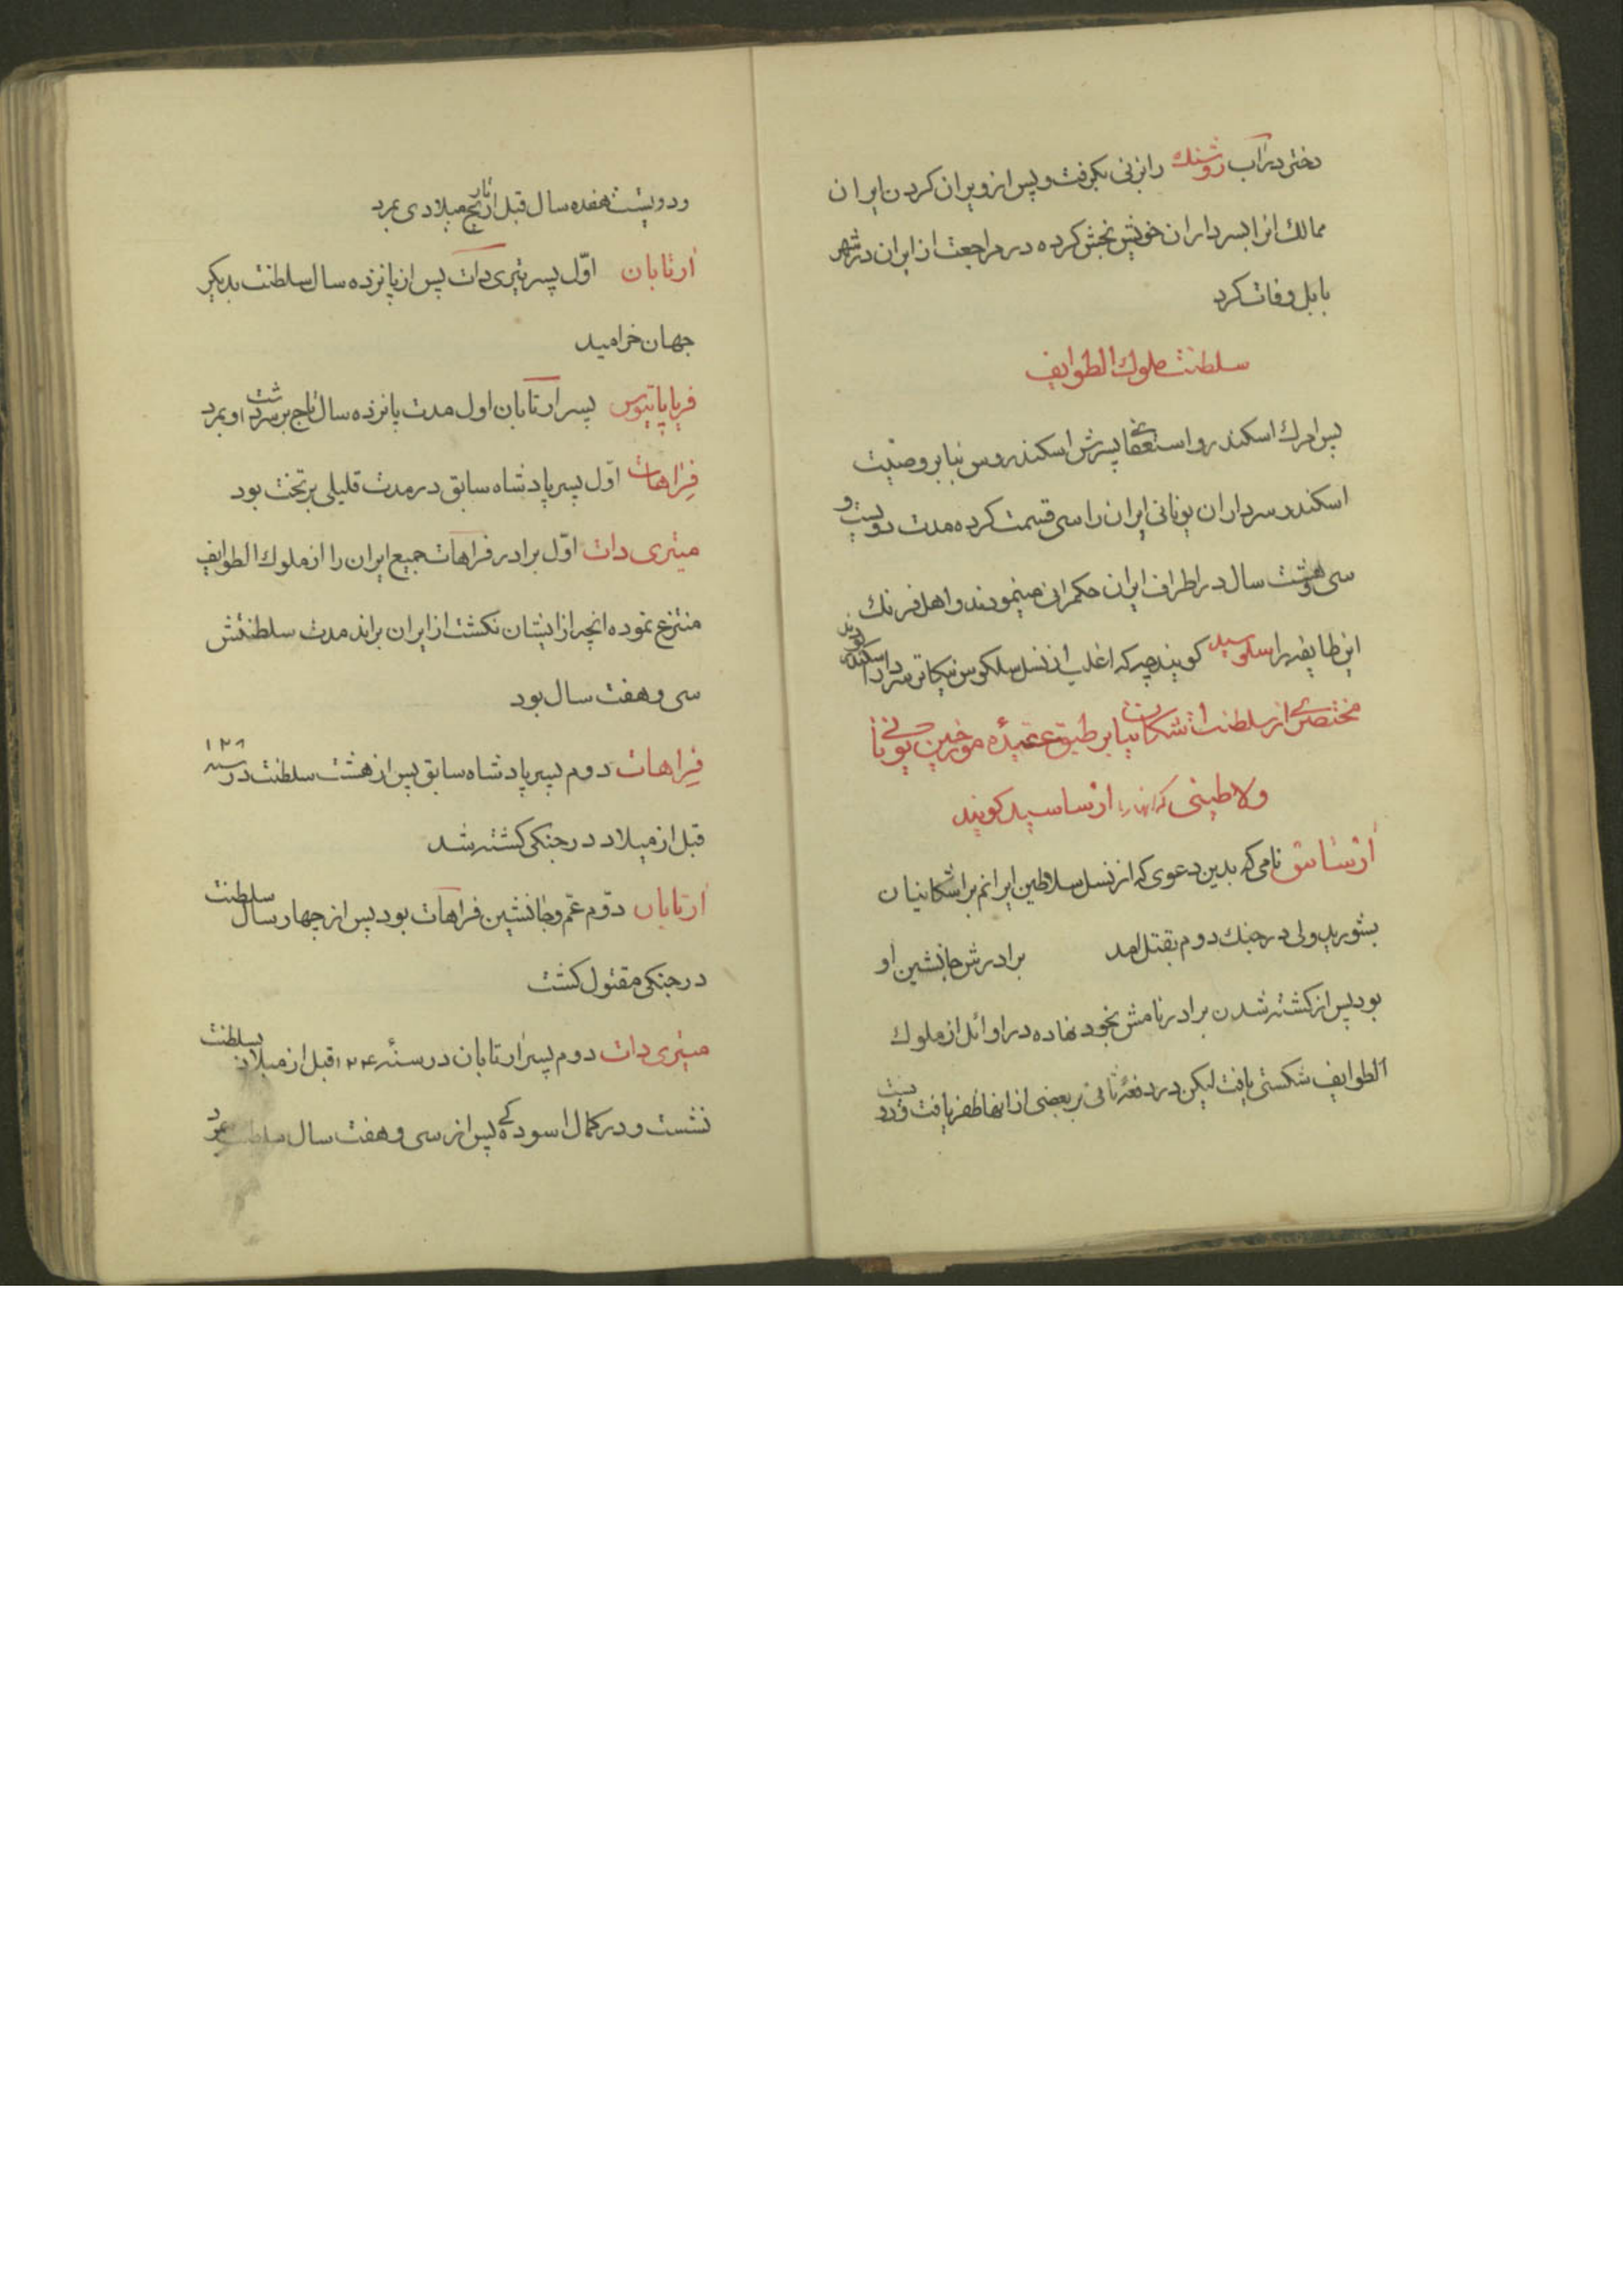 دختر دارآب روشنك را بزنی بكرفت و پس از ویران كردن ایران
ممالك انرا بسرداران خویش بخش كرده در مراجعت از ایران در شهر
بابل وفات كرد
سلطنت ملوك الطوایف
پس از مرك اسكندر و استعفای پسرش اسكندروس بنا بر وصیت
اسكندر سرداران یونانی ایران را سی قسمت كرده مدت دویست و
سی و هشت سال در اطراف ایران حكمرانی مینمودند و اهل فرنك
این طایفه را سلوسید كویند چه كه اغلب از نسل سلكوس نیكاتر سردار اسكندر بودند
مختصری از سلطنت اشكانیان بر طبق عقیده مورخین یونانی
و لاطینی كه انها را ارساسید كویند
ارساس نامی كه بدین دعوی كه از نسل سلاطین ایرانم بر اشكانیان
بشورید ولی در جنك دوم بقتل امد برادرش جانشین او
بود پس از كشته شدن برادر نامش بخود نهاده در اوائل از ملوك
الطوایف شكستی یافت لیكن در دفعهٔ ثانی بر بعضی از انها ظفر یافت و در دویست
و دویست هفده سال قبل از تاریخ میلادی بمرد
ارتابان اوّل پسر تیری دات پس از پانزده سال سلطنت بدیكر
جهان خرامید
فریاپاتیوس پسر ارتابان اول مدت پانزده سال تاج بر سر داشت او بمرد
فراهات اوّل پسر پادشاه سابق در مدت قلیلی بر تخت بود
میتری دات اوّل برادر فراهات جمیع ایران را از ملوك الطوایف
منتزع نموده انچه از ایشان نكشت از ایران براند مدت سلطنتش
سی و هفت سال بود
فراهات دوم پسر پادشاه سابق پس از هشت سلطنت در سنه ۱۲۸
قبل از میلاد در جنكی كشته شد
ارتابان دوّم عمّ و جانشین فراهات بود پس از چهار سال سلطنت
در جنكی مقتول كشت
میتری دات دوم پسر ارتابان در سنهٔ ۱۲۴ قبل از میلاد بسلطنت
نشست و در كمال اسودكی پس از سی و هفت سال سلطنت بمرد